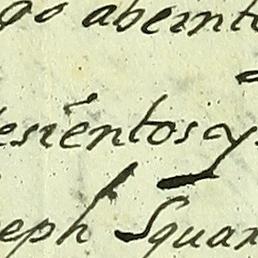 go abeint
esientos y
eph Squar